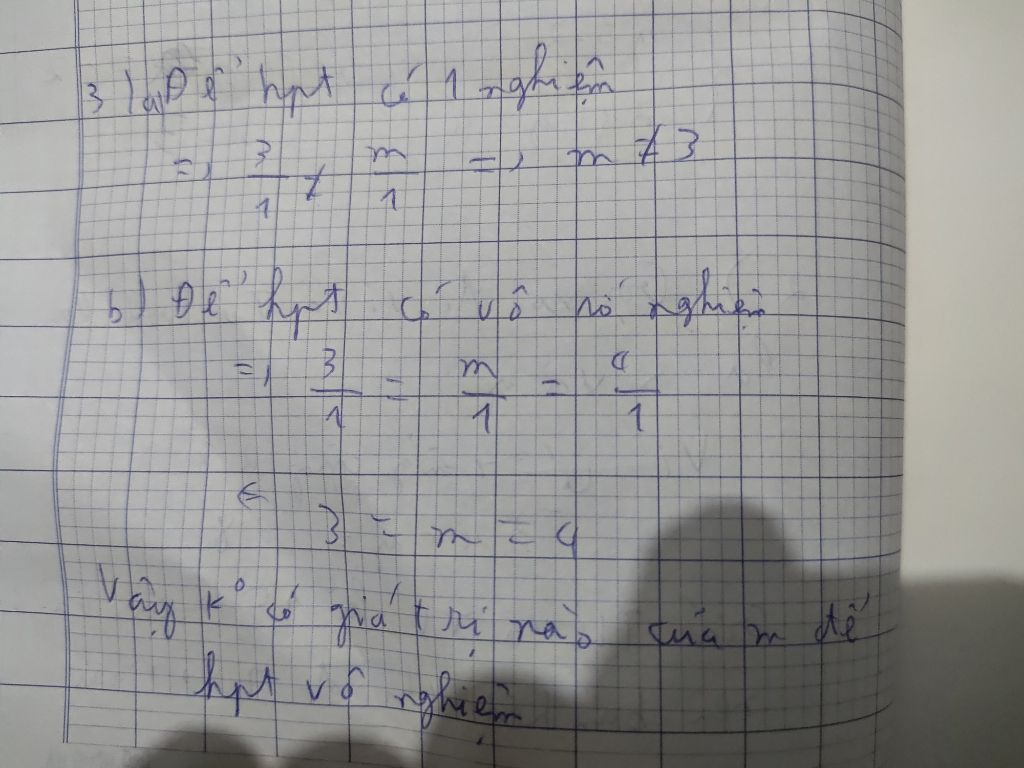 3 | a) Để hpt có 1 nghiệm
=> 3/1 ≠ m/1 => m ≠ 3
b) Để hpt có vô số nghiệm
=> 3/1 = m/1 = 4/1
<= 3 = m = 4
Vậy k° có giá trị nào của m để
hpt vô nghiệm